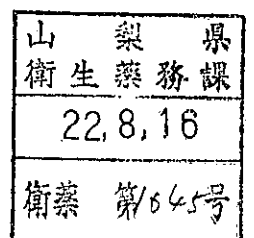 山梨県
衛生薬務課
22.8.16
衛薬 第1645号